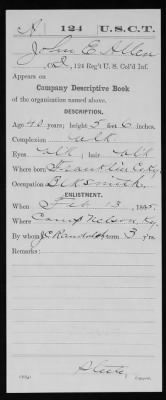 A | 124 | U.S.C.T.
John E. Allen
Co. D, 124 Reg't U. S. Col'd Inf.
Appears on
Company Descriptive Book
of the organization named above.
DESCRIPTION.
Age 40 years; height 5 feet 6 inches.
Complexion blk
Eyes blk; hair blk
Where born Franklin Co Ky.
Occupation Blksmith.
ENLISTMENT.
When Feb 13, 1865.
Where Camp Nelson, Ky.
By whom J C Randolph; term 3 y'rs.
Remarks: